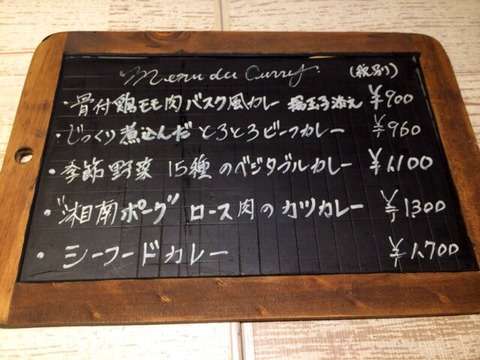 Menu du Curry (税別)
・骨付鶏モモ肉バスク風カレー 揚玉子添え ¥900
・じっくり煮込んだとろとろビーフカレー ¥960
・季節野菜 15種のベジタブルカレー ¥1,100
・湘南ポーク ロース肉のカツカレー ¥1300
・シーフードカレー ¥1,700